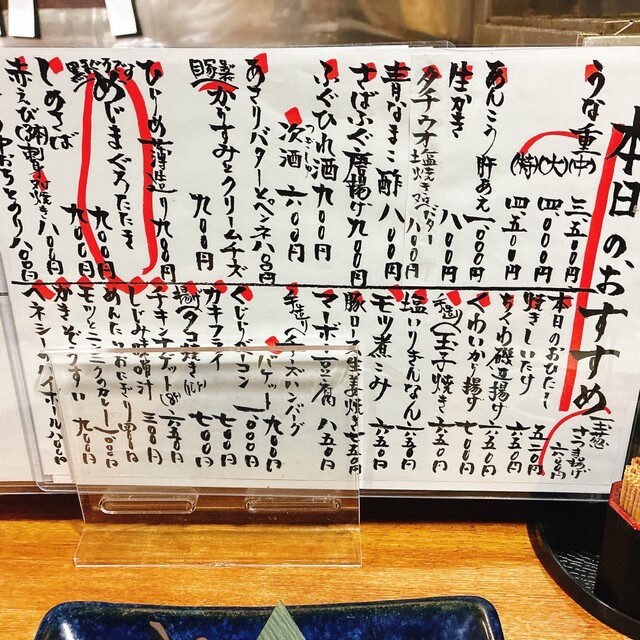 本日の、おすすめ
うな重(中) 三、五〇〇円
(大) 四、〇〇〇円
(特) 四、五〇〇円
あんこう肝あえ 一、〇〇〇円
生かき 八〇〇円
タチウオ塩焼き又はバター 八〇〇円
青なまこ酢 八〇〇円
さばふぐ唐揚げ 九〇〇円
ふぐひれ酒 八〇〇円
つぎ酒 六〇〇円
あさりバターとペンネ 八〇〇円
豚製 からすみとクリームチーズ 九〇〇円
ひらめ薄造り 九〇〇円
めじまぐろたたき 九〇〇円
しめさば 八〇〇円
赤えび(刺身又は焼き) 八〇〇円
玉葱
さつま揚げ 六〇〇円
本日のおひたし 五五〇円
焼きしいたけ 五五〇円
ちくわ磯辺揚げ 六五〇円
くわいから揚げ 七〇〇円
手造り 玉子焼き 六五〇円
塩いりぎんなん 六五〇円
モツ煮こみ 六五〇円
豚ロース生姜焼き 七五〇円
マーボー豆腐 八五〇円
手造りチーズハンバーグ 九〇〇円
バゲット
くじらベーコン 一、〇〇〇円
カキフライ 七〇〇円
揚げタコ焼き 七〇〇円
チキンナゲット 六五〇円
しじみ味噌汁 三〇〇円
めんたいおにぎり 四〇〇円
モツとニンニクのカレー 一、〇〇〇円
かきぞうすい 九〇〇円
ヘネシーのハイボール 八〇〇円